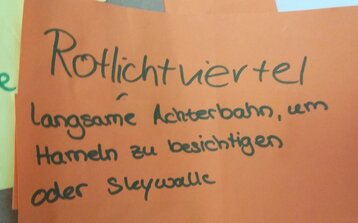 Rotlichtviertel
langsame Achterbahn, um
Hameln zu besichtigen
oder Skywalk
e